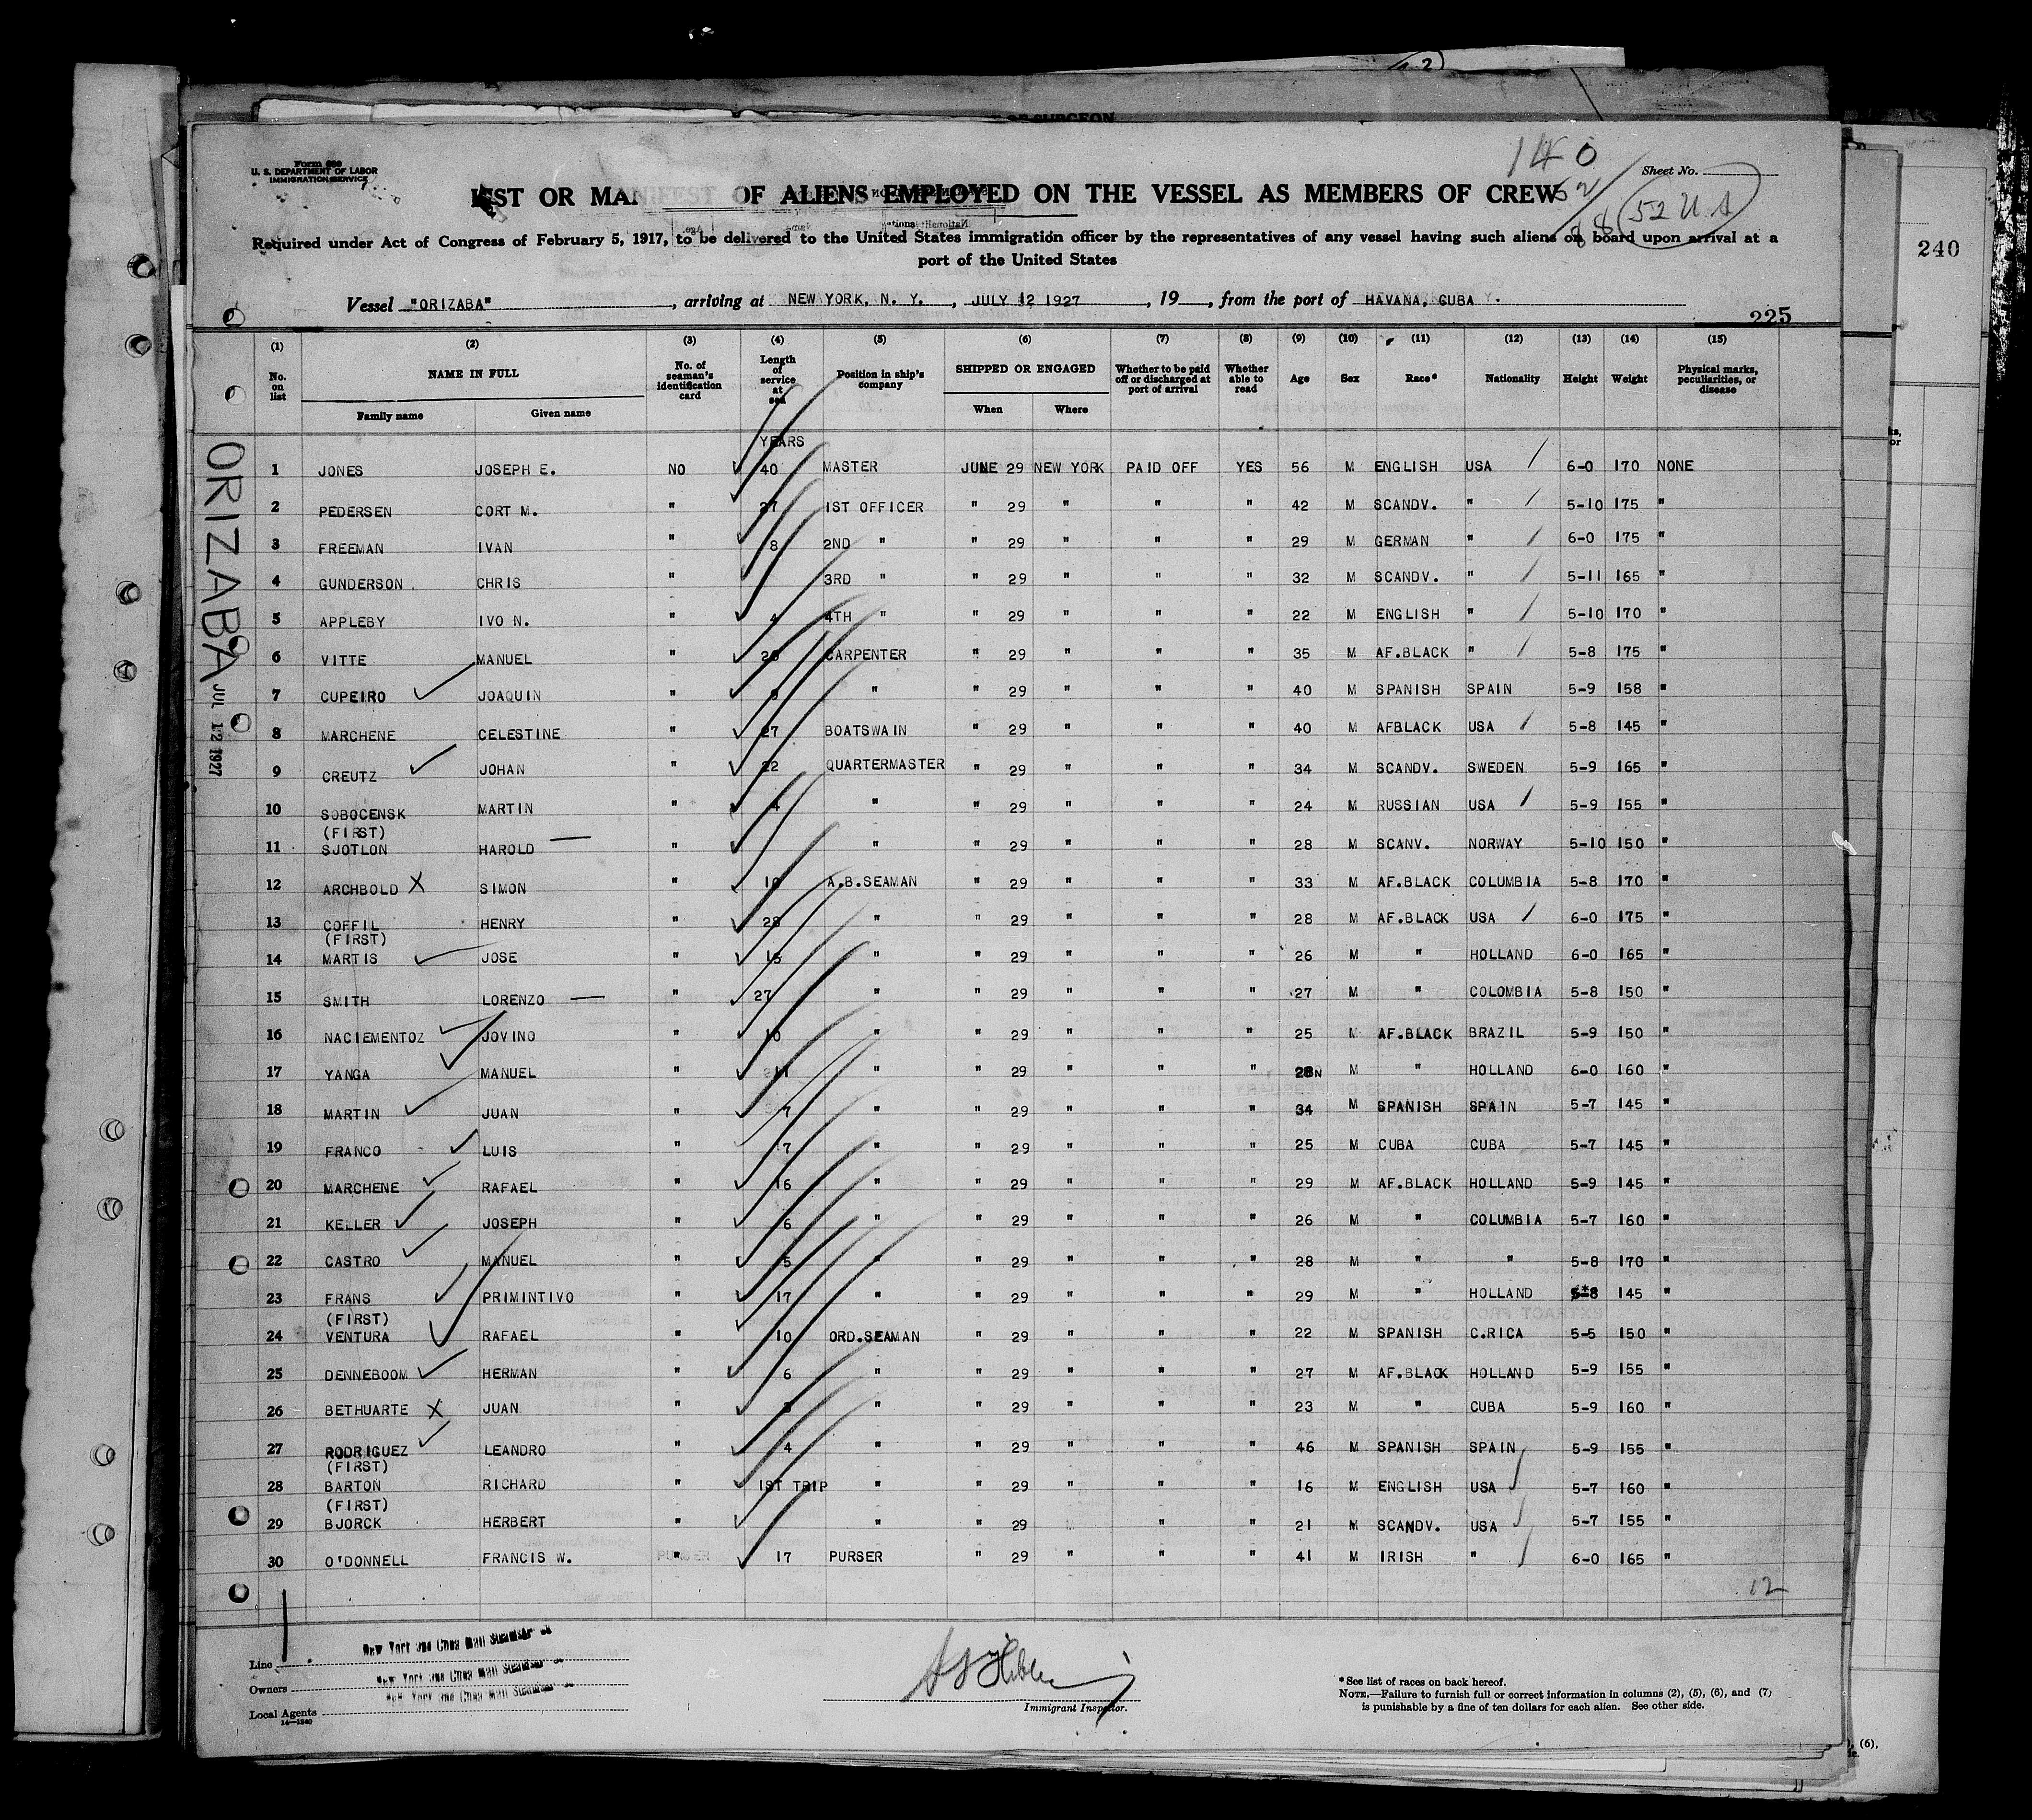 140
Form 680
U. S. DEPARTMENT OF LABOR
IMMIGRATION SERVICE
Sheet No.
LIST OR MANIFEST OF ALIENS EMPLOYED ON THE VESSEL AS MEMBERS OF CREW
52 U.S
Required under Act of Congress of February 5, 1917, to be delivered to the United States immigration officer by the representatives of any vessel having such aliens on board upon arrival at a
port of the United States
240
Vessel "ORIZABA", arriving at NEW YORK, N. Y., JULY 12 1927, 19, from the port of HAVANA, CUBA
225
(1) (2) (3) (4) (5) (6) (7) (8) (9) (10) (11) (12) (13) (14) (15)
No. on list NAME IN FULL Family name Given name No. of seaman's identification card Length of service at sea Position in ship's company SHIPPED OR ENGAGED When Where Whether to be paid off or discharged at port of arrival Whether able to read Age Sex Race* Nationality Height Weight Physical marks, peculiarities, or disease
YEARS
1 JONES JOSEPH E. NO 40 MASTER JUNE 29 NEW YORK PAID OFF YES 56 M ENGLISH USA 6-0 170 NONE
2 PEDERSEN CORT M. " 27 1ST OFFICER " 29 " " " 42 M SCANDV. " 5-10 175 "
3 FREEMAN IVAN " 8 2ND " " 29 " " " 29 M GERMAN " 6-0 175 "
4 GUNDERSON CHRIS " 3RD " " 29 " " " 32 M SCANDV. " 5-11 165 "
5 APPLEBY IVO N. " 4 4TH " 29 " " " 22 M ENGLISH " 5-10 170 "
6 VITTE MANUEL " CARPENTER " 29 " " " 35 M AF.BLACK " 5-8 175 "
7 CUPEIRO JOAQUIN " 9 " " 29 " " " 40 M SPANISH SPAIN 5-9 158 "
8 MARCHENE CELESTINE " 27 BOATSWAIN " 29 " " " 40 M AFBLACK USA 5-8 145 "
9 CREUTZ JOHAN " 22 QUARTERMASTER " 29 " " " 34 M SCANDV. SWEDEN 5-9 165 "
10 SOBOCENSK MARTIN " 4 " " 29 " " " 24 M RUSSIAN USA 5-9 155 "
(FIRST)
11 SJOTLON HAROLD " " " 29 " " " 28 M SCANV. NORWAY 5-10 150 "
12 ARCHBOLD X SIMON " 10 A.B.SEAMAN " 29 " " " 33 M AF.BLACK COLUMBIA 5-8 170 "
13 COFFIL HENRY " 28 " " 29 " " " 28 M AF.BLACK USA 6-0 175 "
(FIRST)
14 MARTIS JOSE " 15 " " 29 " " " 26 M " HOLLAND 6-0 165 "
15 SMITH LORENZO " 27 " " 29 " " " 27 M " COLOMBIA 5-8 150 "
16 NACIEMENTOZ JOVINO " 10 " " 29 " " " 25 M AF.BLACK BRAZIL 5-9 150 "
17 YANGA MANUEL " 11 " " 29 " " " 28 M " HOLLAND 6-0 160 "
18 MARTIN JUAN " 7 " " 29 " " " 34 M SPANISH SPAIN 5-7 145 "
19 FRANCO LUIS " 7 " " 29 " " " 25 M CUBA CUBA 5-7 145 "
20 MARCHENE RAFAEL " 16 " " 29 " " " 29 M AF.BLACK HOLLAND 5-9 145 "
21 KELLER JOSEPH " 6 " " 29 " " " 26 M " COLUMBIA 5-7 160 "
22 CASTRO MANUEL " 5 " " 29 " " " 28 M " " 5-8 170 "
23 FRANS PRIMINTIVO " 17 " 29 " " " 29 M " HOLLAND 5-8 145 "
(FIRST)
24 VENTURA RAFAEL " 10 ORD.SEAMAN " 29 " " " 22 M SPANISH C.RICA 5-5 150 "
25 DENNEBOOM HERMAN " 6 " " 29 " " " 27 M AF.BLACK HOLLAND 5-9 155 "
26 BETHUARTE X JUAN " " " 29 " " " 23 M " CUBA 5-9 160 "
27 RODRIGUEZ LEANDRO " 4 " " 29 " " " 46 M SPANISH SPAIN 5-9 155 "
(FIRST)
28 BARTON RICHARD " 1ST TRIP " " 29 " " " 16 M ENGLISH USA 5-7 160 "
(FIRST)
29 BJORCK HERBERT " " " 29 " " 21 M SCANDV. USA 5-7 155 "
30 O'DONNELL FRANCIS W. " 17 PURSER " 29 " " " 41 M IRISH " 6-0 165 "
12
ORIZABA
JUL 12 1927
Line New York and Cuba Mail Steamship
Owners New York and Cuba Mail Steamship
Local Agents New York and Cuba Mail Steamship
14—1240
Immigrant Inspector.
*See list of races on back hereof.
NOTE.—Failure to furnish full or correct information in columns (2), (5), (6), and (7)
is punishable by a fine of ten dollars for each alien. See other side.